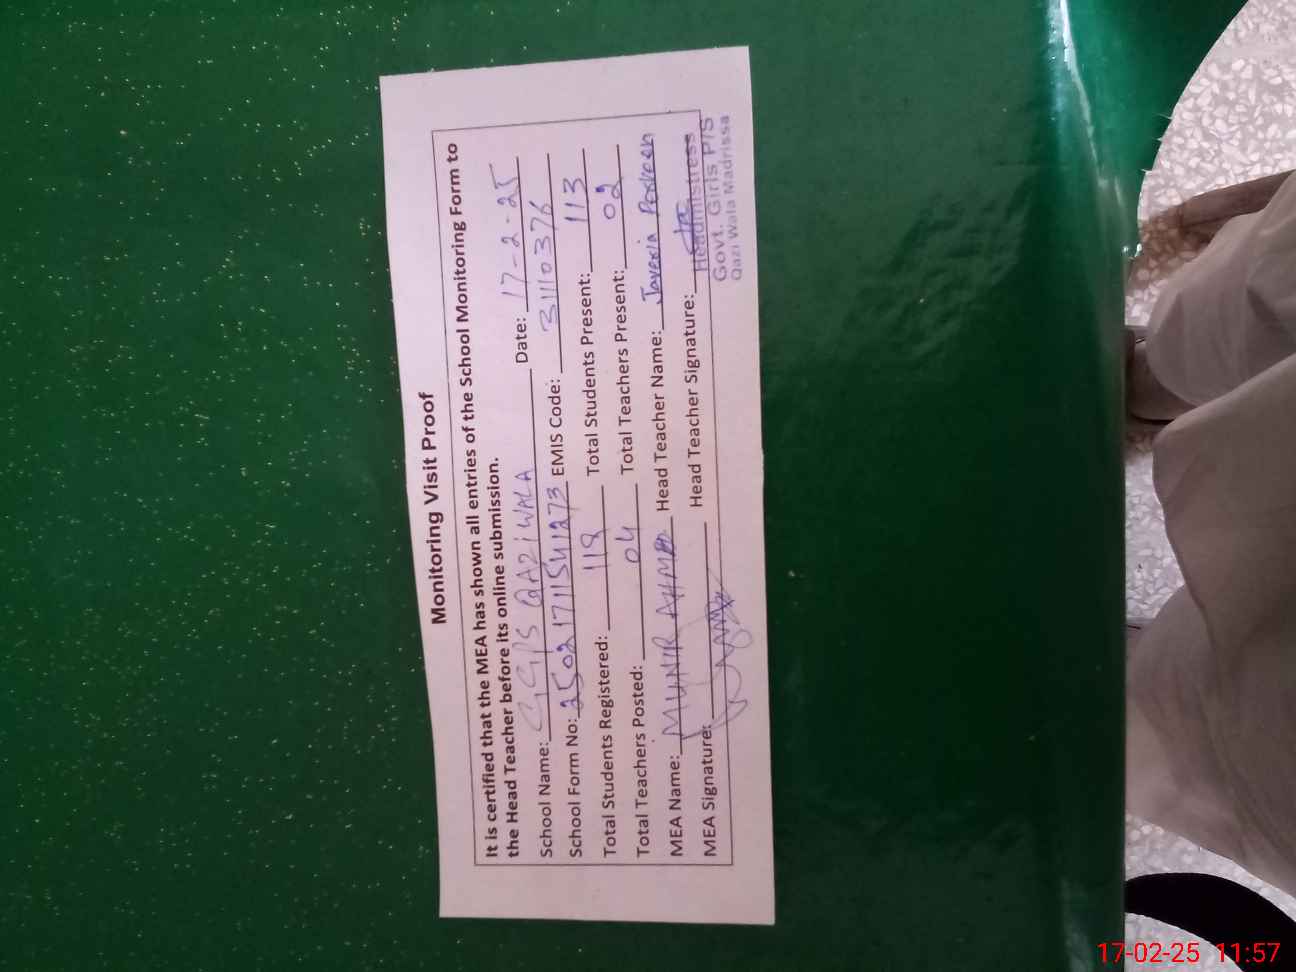 Monitoring Visit Proof
It is certified that the MEA has shown all entries of the School Monitoring Form to
the Head Teacher before its online submission.
School Name: GGPS QAZI WALA Date: 17-2-25
School Form No: 250217115141273 EMIS Code: 31110376
Total Students Registered: 119 Total Students Present: 113
Total Teachers Posted: 04 Total Teachers Present: 02
MEA Name: MUNIR AHMAD Head Teacher Name: Javeria Parveen
MEA Signature: Head Teacher Signature:
Headmistress
Govt. Girls P/S
Qazi Wala Madrissa
17-02-25 11:57